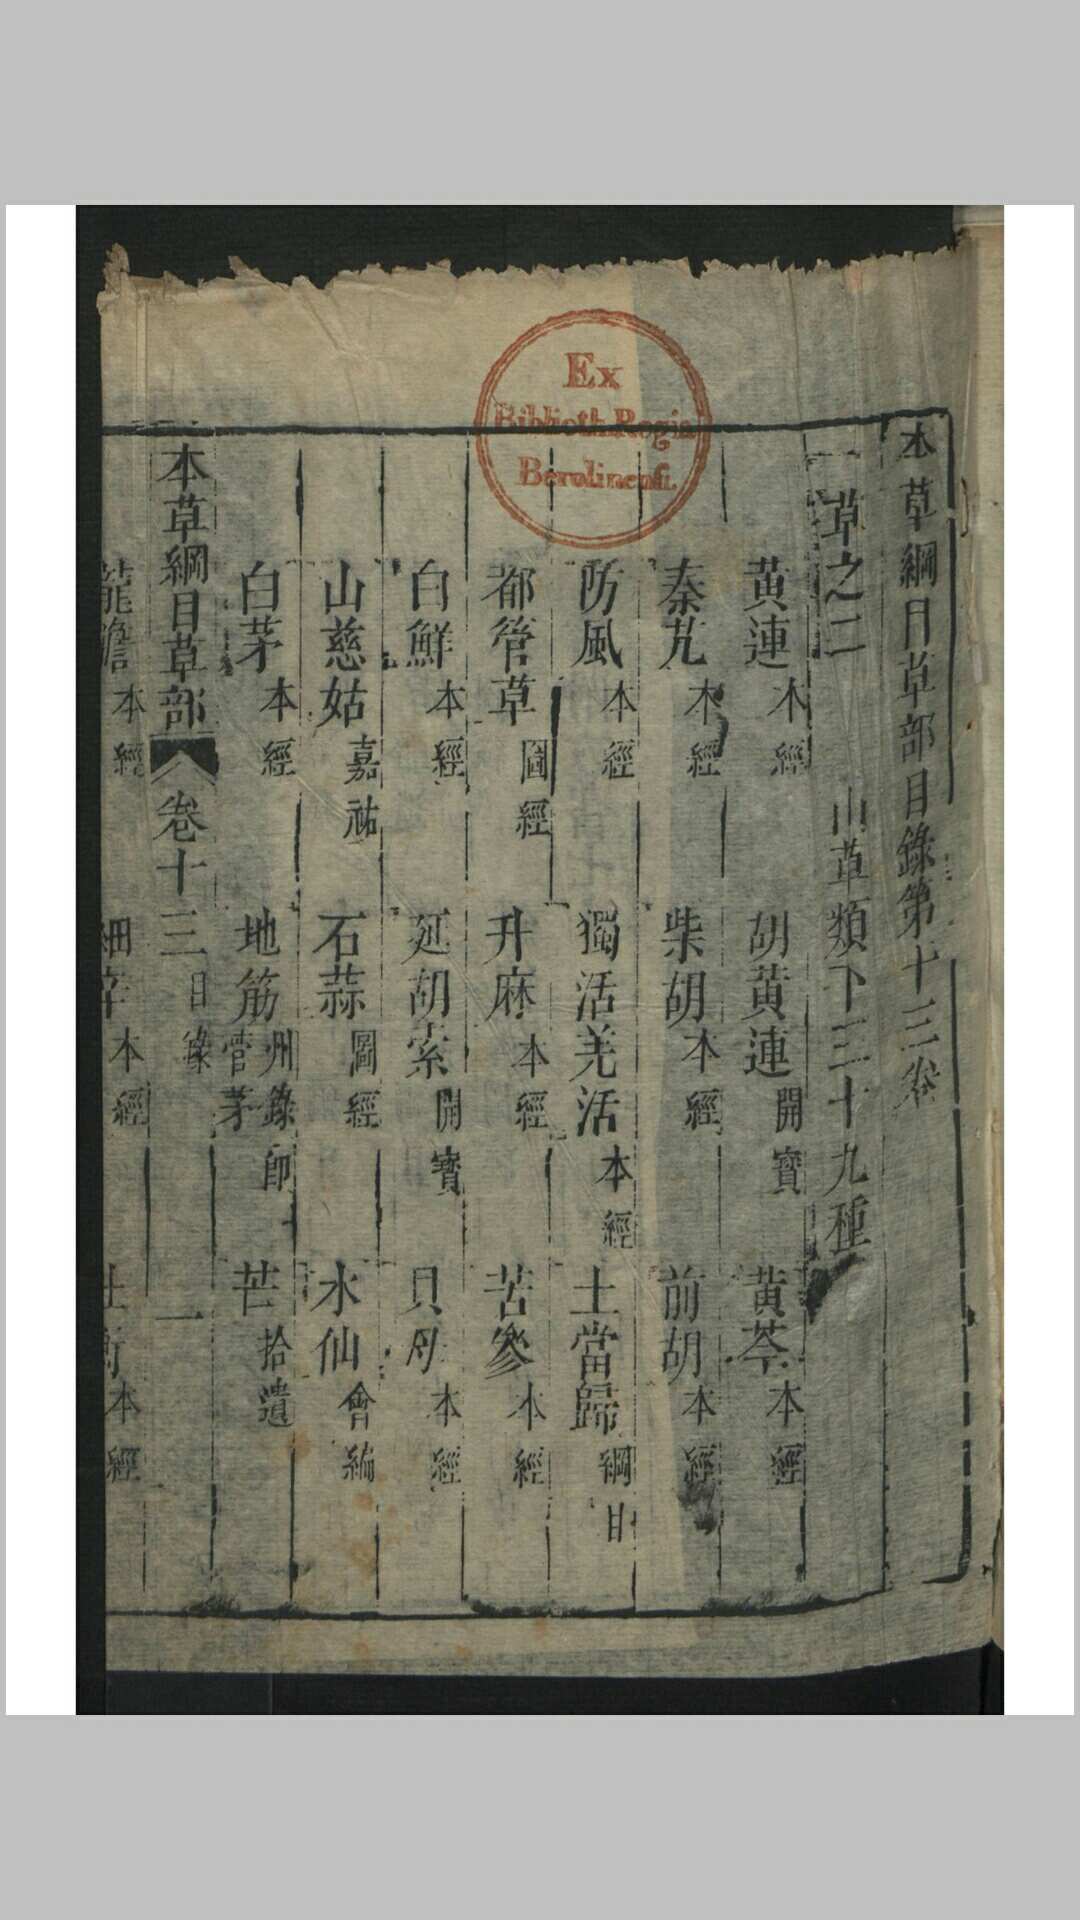 Ex
Biblioth. Regia
Berolinensi.
本草綱目草部目錄第十三卷
草之二 山草類下三十九種
黃連本經 胡黃連開寶 黃芩本經
秦艽本經 柴胡本經 前胡本經
防風本經 獨活羌活本經 土當歸綱目
都管草圖經 升麻本經 苦參本經
白鮮本經 延胡索開寶 貝母本經
山慈姑嘉祐 石蒜圖經 水仙會編
白茅本經 地筋別錄菅茅 芒拾遺
本草綱目草部 卷十三目錄 一
龍膽本經 細辛本經 杜衡本經